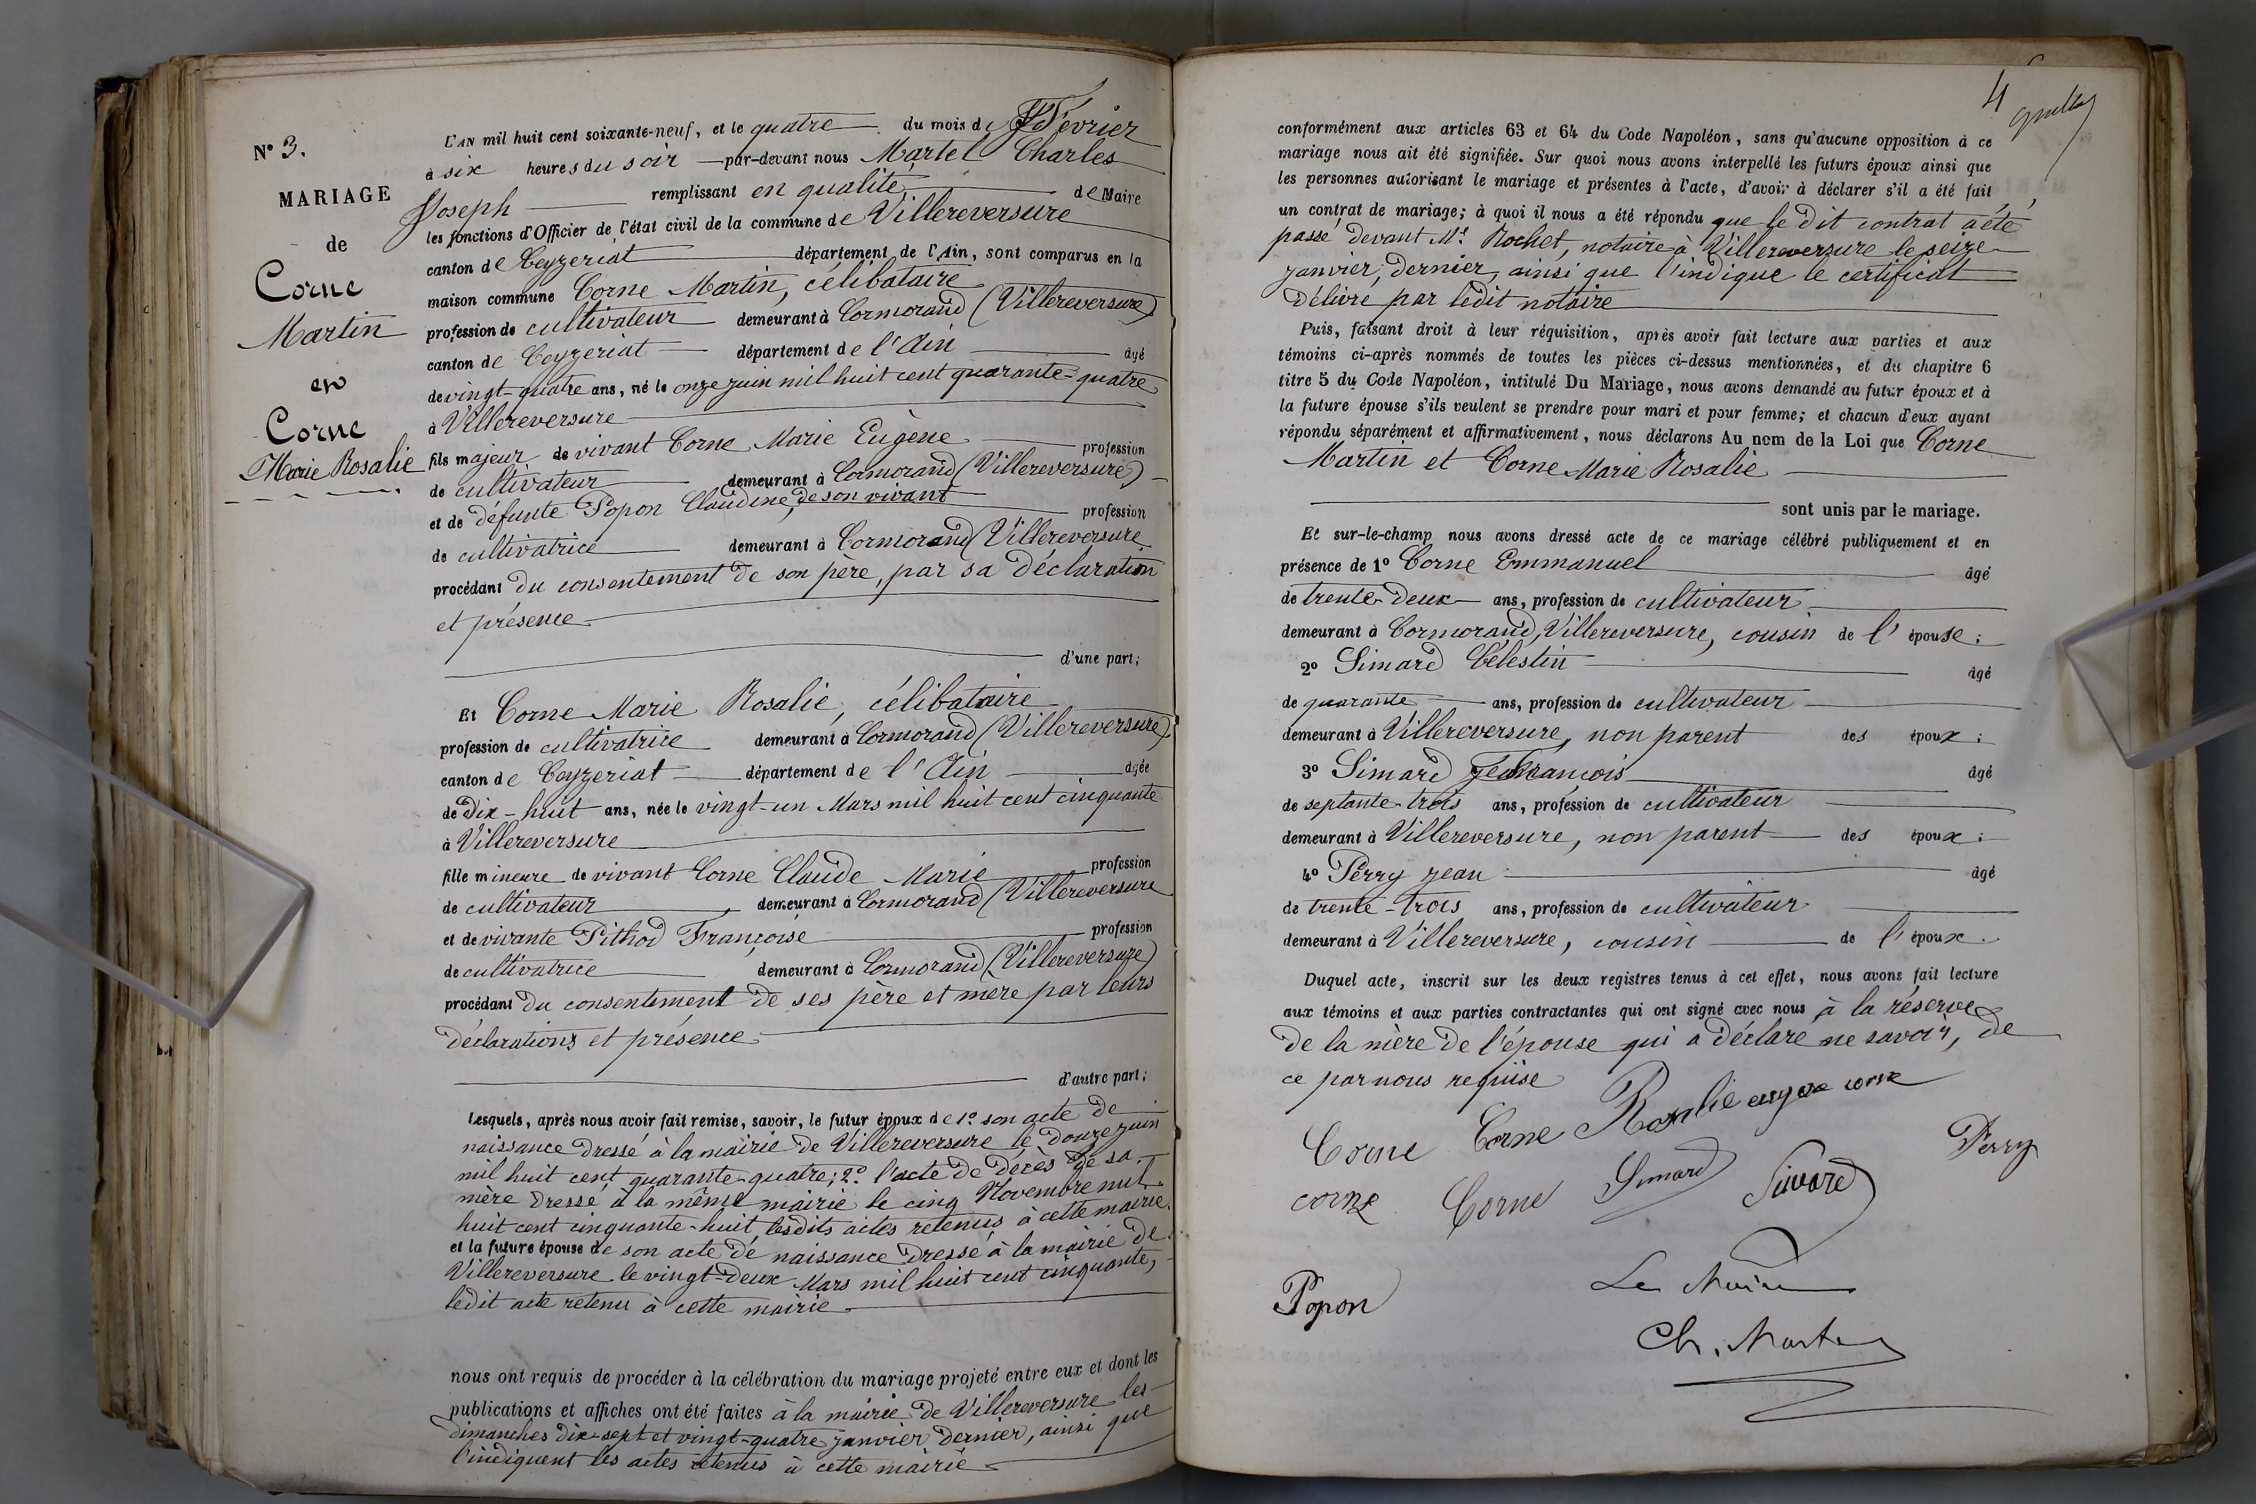 N° 3.
MARIAGE
de
Corne
Martin
en
Corne
Marie Rosalie
L'AN mil huit cent soixante-neuf, et le quatre du mois de Février
à six heures du soir par-devant nous Martel Charles
Joseph remplissant en qualité de Maire
les fonctions d'Officier de l'état civil de la commune de Villereversure
canton de Ceyzeriat département de l'Ain, sont comparus en la
maison commune Corne Martin, célibataire
profession de cultivateur demeurant à Cormorand (Villereversure)
canton de Ceyzeriat département de l'Ain âgé
de vingt-quatre ans, né le onze juin mil huit cent quarante-quatre
à Villereversure
fils majeur de vivant Corne Marie Eugène profession
de cultivateur demeurant à Cormorand (Villereversure)
et de défunte Popon Claudine, de son vivant profession
de cultivatrice demeurant à Cormorand (Villereversure
procédant du consentement de son père, par sa déclaration
et présence
d'une part;
Et Corne Marie Rosalie, célibataire
profession de cultivatrice demeurant à Cormorand (Villereversure)
canton de Ceyzeriat département de l'Ain âgée
de dix-huit ans, née le vingt-un Mars mil huit cent cinquante
à Villereversure
fille mineure de vivant Corne Claude Marie profession
de cultivateur demeurant à Cormorand (Villereversure
et de vivante Pithod Françoise profession
de cultivatrice demeurant à Cormorand (Villereversure)
procédant du consentement de ses père et mère par leurs
déclarations et présence
d'autre part;
Lesquels, après nous avoir fait remise, savoir, le futur époux de 1° son acte de
naissance dressé à la mairie de Villereversure le douze juin
mil huit cent quarante-quatre; 2° l'acte de décès de sa
mère dressé à la même mairie le cinq Novembre mil
huit cent cinquante-huit, lesdits actes retenus à cette mairie.
et la future épouse de son acte de naissance dressé à la mairie de
Villereversure le vingt-deux Mars mil huit cent cinquante,
ledit acte retenu à cette mairie
nous ont requis de procéder à la célébration du mariage projeté entre eux et dont les
publications et affiches ont été faites à la mairie de Villereversure les
dimanches dix-sept et vingt-quatre janvier dernier, ainsi que
l'indiquent les actes retenus à cette mairie
4
conformément aux articles 63 et 64 du Code Napoléon, sans qu'aucune opposition à ce
mariage nous ait été signifiée. Sur quoi nous avons interpellé les futurs époux ainsi que
les personnes autorisant le mariage et présentes à l'acte, d'avoir à déclarer s'il a été fait
un contrat de mariage; à quoi il nous a été répondu que le dit contrat a été
passé devant Me Rochet, notaire à Villereversure le seize
janvier, dernier, ainsi que l'indique le certificat
délivré par ledit notaire
Puis, faisant droit à leur réquisition, après avoir fait lecture aux parties et aux
témoins ci-après nommés de toutes les pièces ci-dessus mentionnées, et du chapitre 6
titre 5 du Code Napoléon, intitulé Du Mariage, nous avons demandé au futur époux et à
la future épouse s'ils veulent se prendre pour mari et pour femme; et chacun d'eux ayant
répondu séparément et affirmativement, nous déclarons Au nom de la Loi que Corne
Martin et Corne Marie Rosalie
sont unis par le mariage.
Et sur-le-champ nous avons dressé acte de ce mariage célébré publiquement et en
présence de 1° Corne Emmanuel âgé
de trente-deux ans, profession de cultivateur
demeurant à Cormorand, Villereversure, cousin de l'épouse;
2° Simard Célestin âgé
de quarante ans, profession de cultivateur
demeurant à Villereversure, non parent des époux;
3° Simard François âgé
de septante-trois ans, profession de cultivateur
demeurant à Villereversure, non parent des époux;
4° Perry Jean âgé
de trente-trois ans, profession de cultivateur
demeurant à Villereversure, cousin de l'époux.
Duquel acte, inscrit sur les deux registres tenus à cet effet, nous avons fait lecture
aux témoins et aux parties contractantes qui ont signé avec nous à la réserve
de la mère de l'épouse qui a déclaré ne savoir, de
ce par nous requise
Corne Corne Rosalie corne
Perry
corne Corne Simard Simard
Popon
Le Maire
Ch. Martel